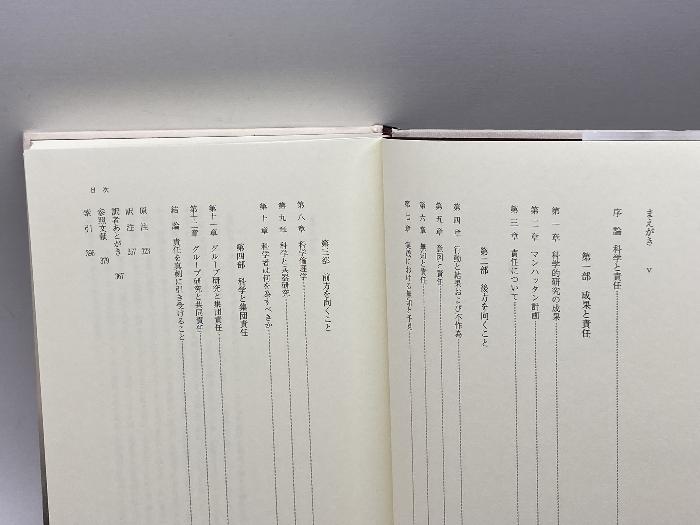 まえがき v
序論 科学と責任
第一部 成果と責任
第一章 科学的研究の成果
第二章 マンハッタン計画
第三章 責任について
第二部 後方を向くこと
第四章 行動と結果および不作為
第五章 意図と責任
第六章 無知と責任
第七章 実践における無知と予見
第三部 前方を向くこと
第八章 科学倫理学
第九章 科学と兵器研究
第十章 科学者は何を為すべきか
第四部 科学と集団責任
第十一章 グループ研究と集団責任
第十二章 グループ研究と共同責任
結論 責任を真剣に引き受けること
原注 323
訳注 357
訳者あとがき 367
参照文献 379
索引 386
目次